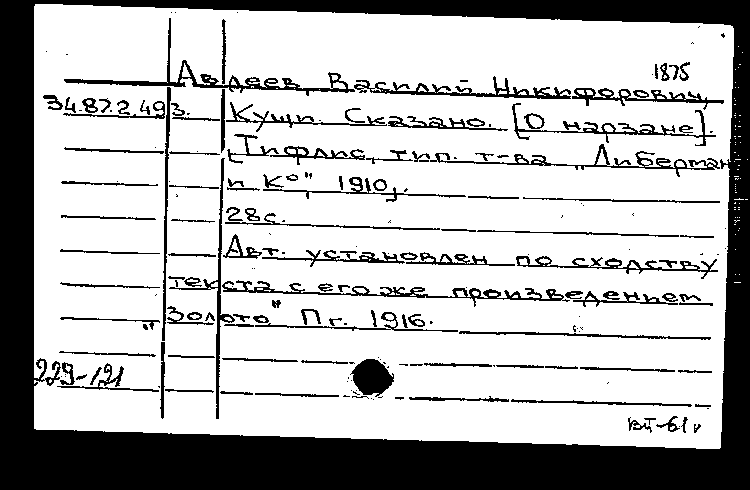 1875
Авдеев, Василий Никифорович,
34.87.2.493. Кущи. Сказано. [О нарзане].
[Тифлис, тип. т-ва „Либерман
и К°", 1910].
28с.
Авт. установлен по сходству
текста с его же произведением
„Золото" Пг. 1916.
229-121